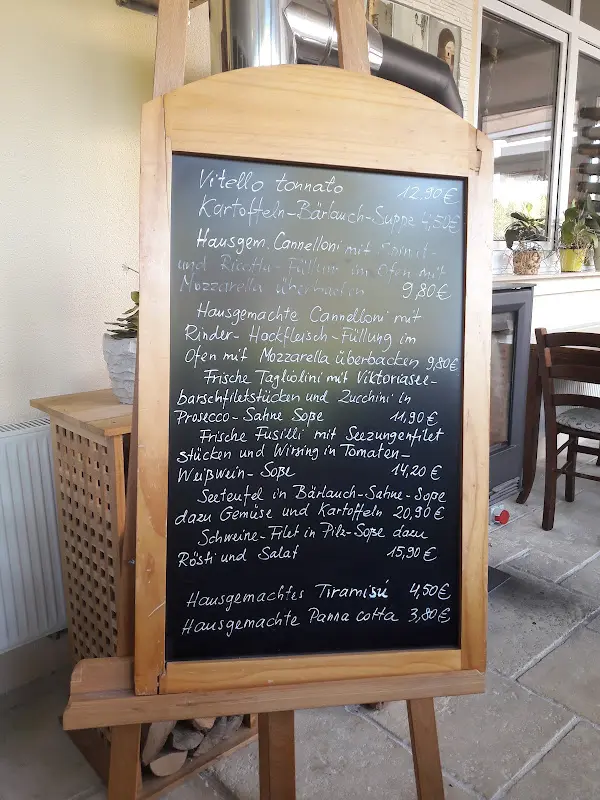 Vitello tonnato 12.90€
Kartoffeln-Bärlauch-Suppe 4,50€
Hausgem. Cannelloni mit Spinat-
und Ricotta-Füllung im Ofen mit
Mozzarella überbacken 9,80€
Hausgemachte Cannelloni mit
Rinder-Hackfleisch-Füllung im
Ofen mit Mozzarella überbacken 9,80€
Frische Tagliolini mit Viktoriasee-
barschfiletstücken und Zucchini in
Prosecco-Sahne Soße 11,90€
Frische Fusilli mit Seezungenfilet
stücken und Wirsing in Tomaten-
Weißwein-Soße 14,20€
Seeteufel in Bärlauch-Sahne-Soße
dazu Gemüse und Kartoffeln 20,90€
Schweine-Filet in Pilz-Soße dazu
Rösti und Salat 15,90€
Hausgemachtes Tiramisú 4,50€
Hausgemachte Panna cotta 3,80€